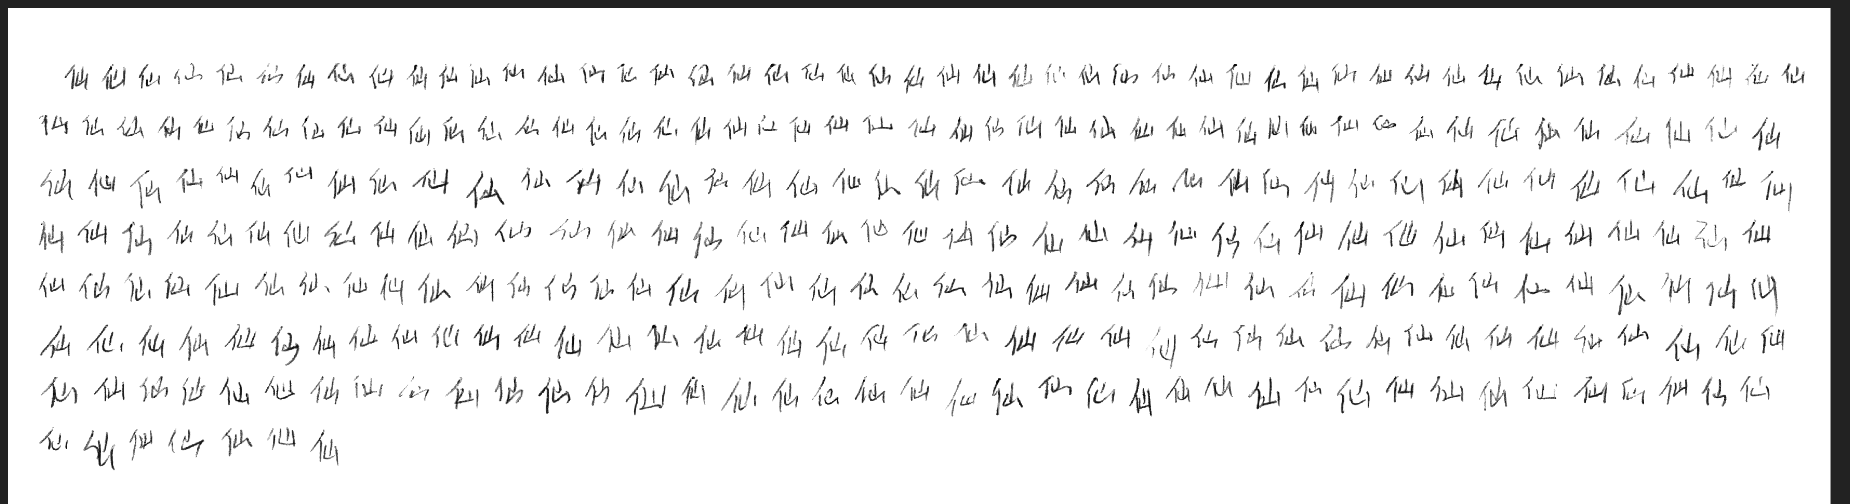 仙仙仙仙仙仙仙仙仙仙仙仙仙仙仙仙仙仙仙仙仙仙仙仙仙仙仙仙仙仙仙仙仙仙仙仙仙仙仙仙仙仙仙仙仙仙仙仙
仙仙仙仙仙仙仙仙仙仙仙仙仙仙仙仙仙仙仙仙仙仙仙仙仙仙仙仙仙仙仙仙仙仙仙仙仙仙仙仙仙仙仙仙仙仙仙
仙仙仙仙仙仙仙仙仙仙仙仙仙仙仙仙仙仙仙仙仙仙仙仙仙仙仙仙仙仙仙仙仙仙仙仙仙仙仙仙
仙仙仙仙仙仙仙仙仙仙仙仙仙仙仙仙仙仙仙仙仙仙仙仙仙仙仙仙仙仙仙仙仙仙仙仙仙仙仙仙
仙仙仙仙仙仙仙仙仙仙仙仙仙仙仙仙仙仙仙仙仙仙仙仙仙仙仙仙仙仙仙仙仙仙仙仙仙仙仙仙
仙仙仙仙仙仙仙仙仙仙仙仙仙仙仙仙仙仙仙仙仙仙仙仙仙仙仙仙仙仙仙仙仙仙仙仙仙仙仙仙
仙仙仙仙仙仙仙仙仙仙仙仙仙仙仙仙仙仙仙仙仙仙仙仙仙仙仙仙仙仙仙仙仙仙仙仙仙仙仙
仙仙仙仙仙仙仙